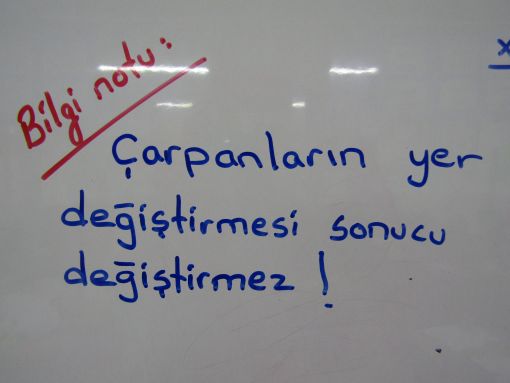 Bilgi notu:
Çarpanların yer
değiştirmesi sonucu
değiştirmez !
x